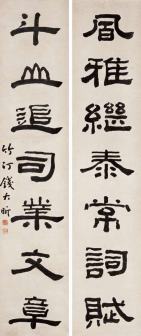 風雅繼泰常詞賦
斗山追司業文章
竹汀錢大昕